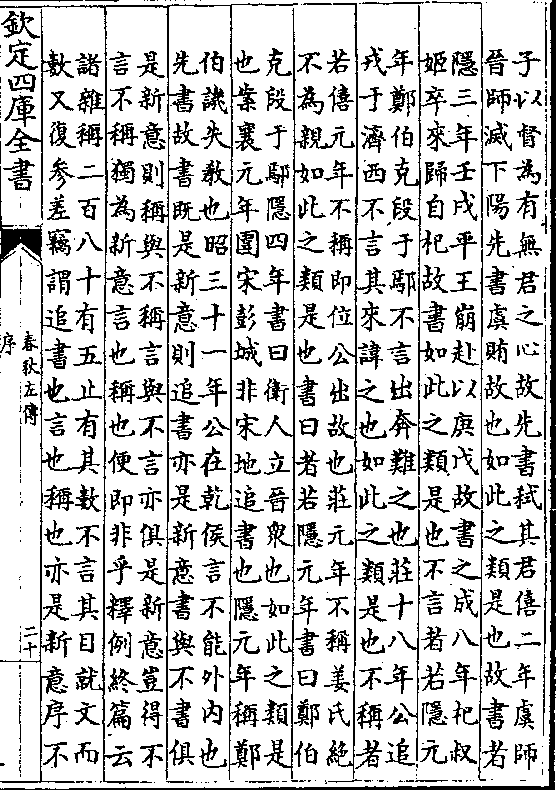 子以督為有無君之心故先書弒其君僖二年虞師
晉師滅下陽先書虞賄故也如此之類是也故書者
隱三年壬戌平王崩赴以庚戌故書之成八年杞叔
姬卒來歸自杞故書如此之類是也不言者若隱元
年鄭伯克段于鄢不言出奔難之也莊十八年公追
戎于濟西不言其來諱之也如此之類是也不稱者
若僖元年不稱即位公出故也莊元年不稱姜氏絕
不為親如此之類是也書曰者若隱元年書曰鄭伯
克段于鄢隱四年書曰衛人立晉衆也如此之類是
也案襄元年圍宋彭城非宋地追書也隱元年稱鄭
伯譏失教也昭三十一年公在乾侯言不能外内也
先書故書既是新意則追書亦是新意書與不書俱
是新意則稱與不稱言與不言亦俱是新意豈得不
言不稱獨為新意言也稱也便即非乎釋例終篇云
諸雜稱二百八十有五止有其數不言其目就文而
數又復參差竊謂追書也言也稱也亦是新意序不
欽定四庫全書
春秋左傳
序
二十